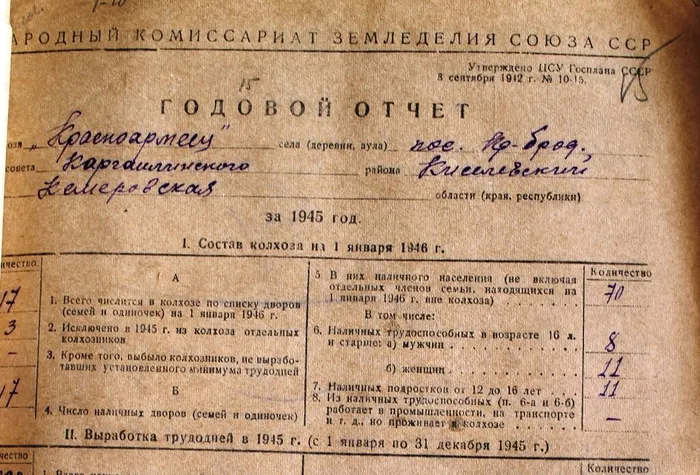 1-10
АРОДНЫЙ КОМИССАРИАТ ЗЕМЛЕДЕЛИЯ СОЮЗА ССР
Утверждено ЦСУ Госплана СССР
8 сентября 1942 г. № 10-15.
15
ГОДОВОЙ ОТЧЕТ
оза „Красноармеец" села (деревни, аула) пос. Яр-Брод,
совета района Киселевский
Кемеровская области (края, республики)
за 1945 год.
I. Состав колхоза на 1 января 1946 г.
ичество
А
17 1. Всего числится в колхозе по списку дворов
(семей и одиночек) на 1 января 1946 г.
3 2. Исключено в 1945 г. из колхоза отдельных
колхозников
– 3. Кроме того, выбыло колхозников, не вырабо-
тавших установленного минимума трудодней
Б
17 4. Число наличных дворов (семей и одиночек)
Количество
5 В них наличного населения (не включая
отдельных членов семьи, находящихся на
1 января 1946 г. вне колхоза) 70
В том числе:
6. Наличных трудоспособных в возрасте 16 л.
и старше: а) мужчин 8
б) женщин 11
7. Наличных подростков от 12 до 16 лет 11
8. Из наличных трудоспособных (п. 6-а и 6-б)
работает в промышленности, на транспорте
и т. д., но проживает в колхозе –
II. Выработка трудодней в 1945 г. (с 1 января по 31 декабря 1945 г.)
ичество
Количество